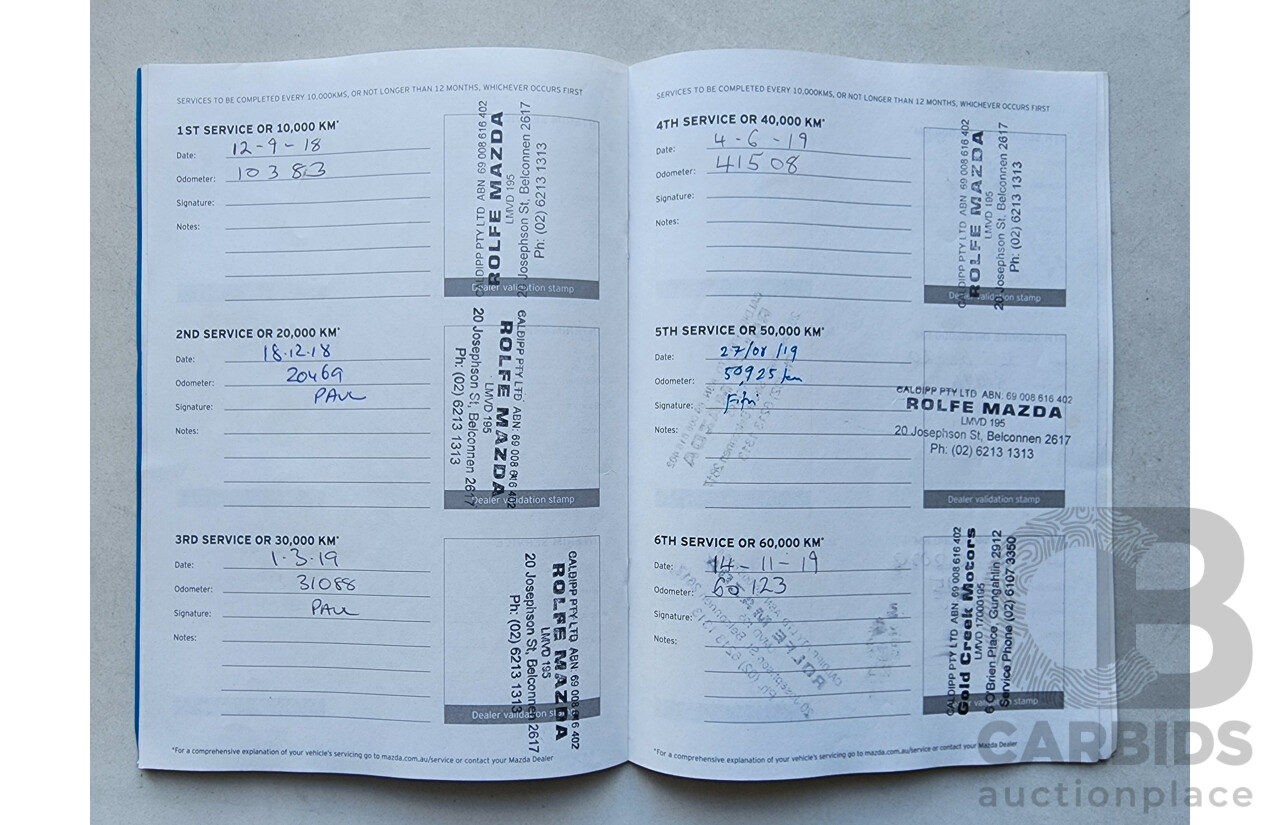 SERVICES TO BE COMPLETED EVERY 10,000KMS, OR NOT LONGER THAN 12 MONTHS, WHICHEVER OCCURS FIRST
1ST SERVICE OR 10,000 KM*
Date: 12-9-18
Odometer: 10383
Signature:
Notes:
CALDIPP PTY LTD ABN 69 008 616 402
ROLFE MAZDA
LMVD 195
20 Josephson St, Belconnen 2617
Ph: (02) 6213 1313
Dealer validation stamp
2ND SERVICE OR 20,000 KM*
Date: 18.12.18
Odometer: 20469
Signature: PAUL
Notes:
CALDIPP PTY LTD ABN: 69 008 616 402
ROLFE MAZDA
LMVD 195
20 Josephson St, Belconnen 2617
Ph: (02) 6213 1313
Dealer validation stamp
3RD SERVICE OR 30,000 KM*
Date: 1.3.19
Odometer: 31088
Signature: PAUL
Notes:
CALDIPP PTY LTD ABN: 69 008 616 402
ROLFE MAZDA
LMVD 195
20 Josephson St, Belconnen 2617
Ph: (02) 6213 1313
Dealer validation stamp
*For a comprehensive explanation of your vehicle's servicing go to mazda.com.au/service or contact your Mazda Dealer
SERVICES TO BE COMPLETED EVERY 10,000KMS, OR NOT LONGER THAN 12 MONTHS, WHICHEVER OCCURS FIRST
4TH SERVICE OR 40,000 KM*
Date: 4-6-19
Odometer: 41508
Signature:
Notes:
CALDIPP PTY LTD ABN 69 008 616 402
ROLFE MAZDA
LMVD 195
20 Josephson St, Belconnen 2617
Ph: (02) 6213 1313
Dealer validation stamp
5TH SERVICE OR 50,000 KM*
Date: 27/08/19
Odometer: 50,925 km
Signature:
Notes:
CALDIPP PTY LTD ABN: 69 008 616 402
ROLFE MAZDA
LMVD 195
20 Josephson St, Belconnen 2617
Ph: (02) 6213 1313
Dealer validation stamp
6TH SERVICE OR 60,000 KM*
Date: 14-11-19
Odometer: 60123
Signature:
Notes:
CALDIPP PTY LTD ABN 69 008 616 402
Gold Creek Motors
LMVD 17000195
6 O'Brien Place, Gungahlin 2912
Service Phone (02) 6107 3350
stamp
*For a comprehensive explanation of your vehicle's servicing go to mazda.com.au/service or contact your Mazda Dealer
CB
CARBIDS
auctionplace